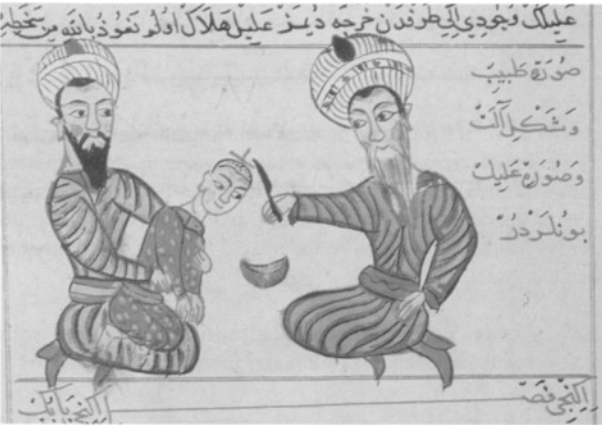 عليلك وجودي طرفدن عليل هلاك اولو نعوذ بالله من سخط
صورة طبيب
وشكل آلت
وصورة عليل
بونلردر
اكنجي فصل
اكنجي بابك